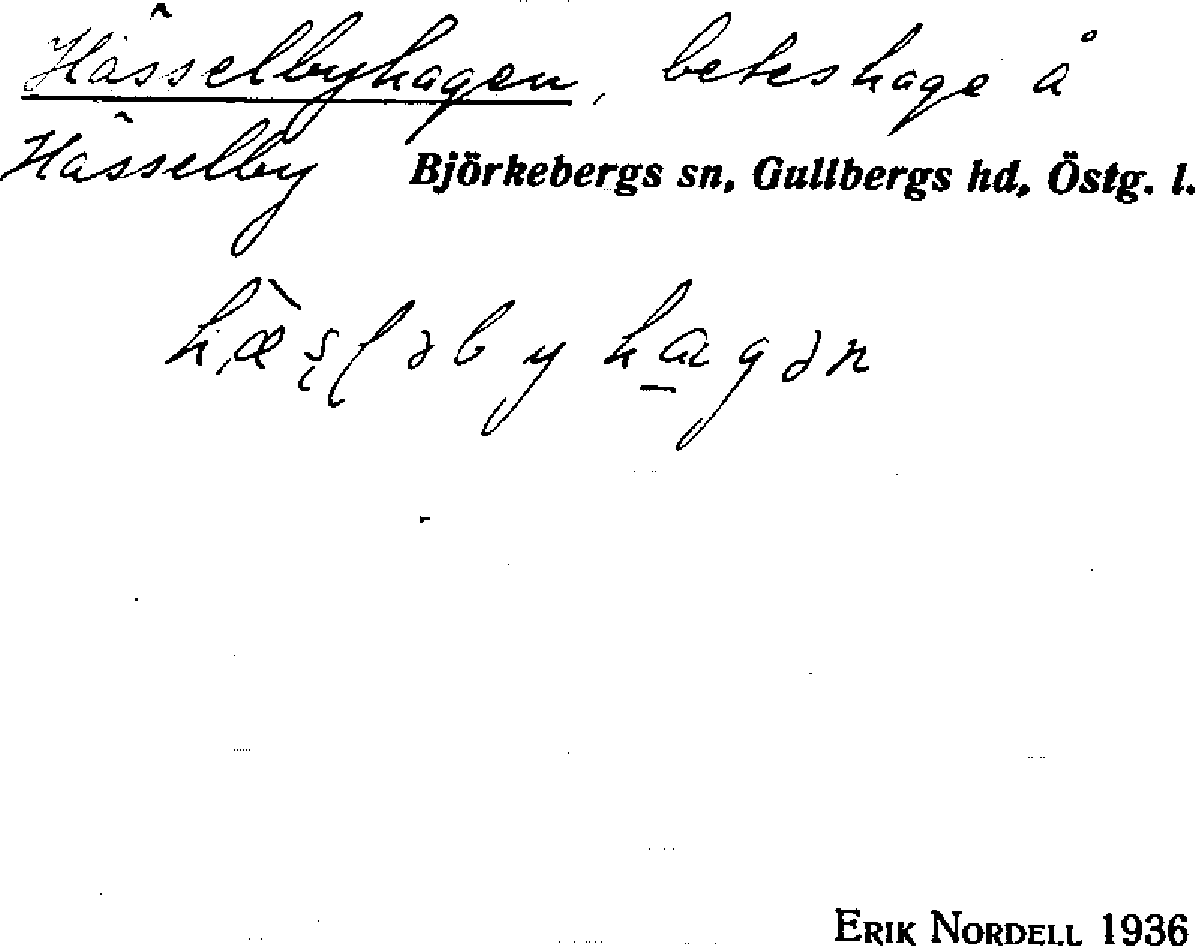 Hässelbyhagen, beteshage å
Hässelby Björkebergs sn, Gullbergs hd, Östg. l.
ERIK NORDELL 1936